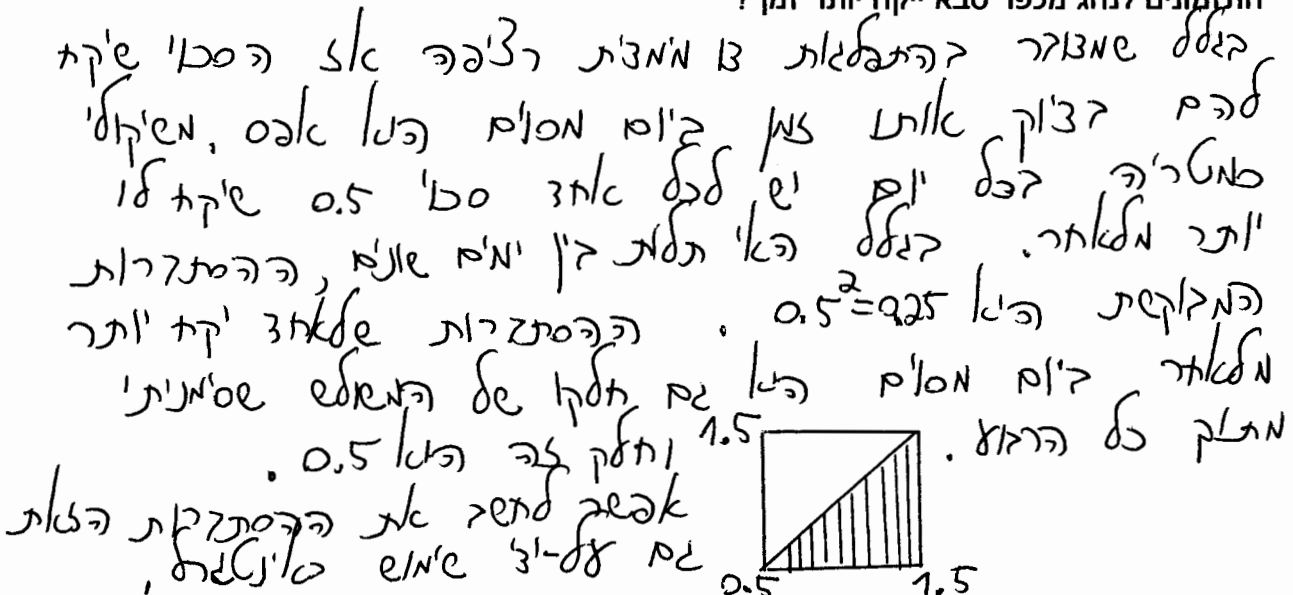 בגלל שמצובר בהתפלגות דו מימדית רציפה אז הסכוי שיקח
להם בדיוק אותו זמן ביום מסוים הוא אפס, משיקולי
סמטריה בכל יום יש לכל אחד סכוי 0.5 שיקח לו
יותר מלאחר. בגלל האי תלות בין ימים שונים, ההסתברות
המבוקשת היא 0.5²=0.25 . ההסתברות שלאחד יקח יותר
מלאחר ביום מסוים היא גם חלקו של המשולש שסימנתי
מתוך כל הרבוע .
1.5
וחלק זה הוא 0.5 .
אפשר לחשב את ההסתברות הזאת
גם על-ידי שימוש באינטגרל,
0.5 1.5